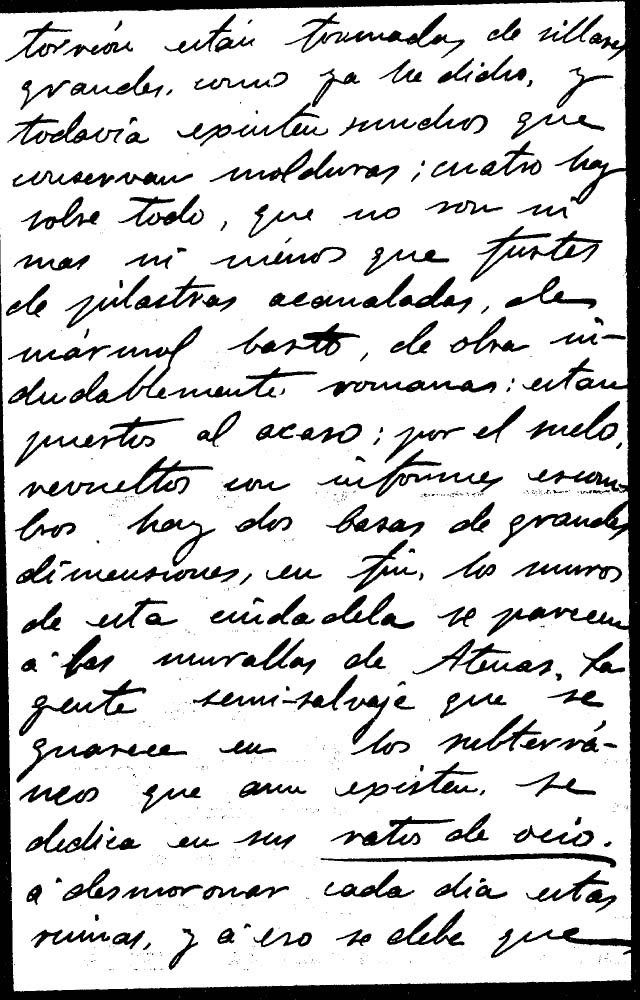 torreón están formadas de sillares
grandes. como ya he dicho, y
todavía existen muchos que
conservan molduras; cuatro hay
sobre todo, que no son ni
mas ni ménos que fustes
de pilastras acanaladas, de
mármol basto, de obra in-
dudablemente romanas: estan
puestos al acaso; por el suelo,
revueltos con informes escom-
bros hay dos basas de grandes
dimensiones, en fin, los muros
de esta ciudadela se parecen
á las murallas de Atenas. La
gente semi-salvaje que se
guarece en los subterrá-
neos que aun existen. se
dedica en sus ratos de ocio.
á desmoronar cada dia estas
ruinas, y á eso se debe que